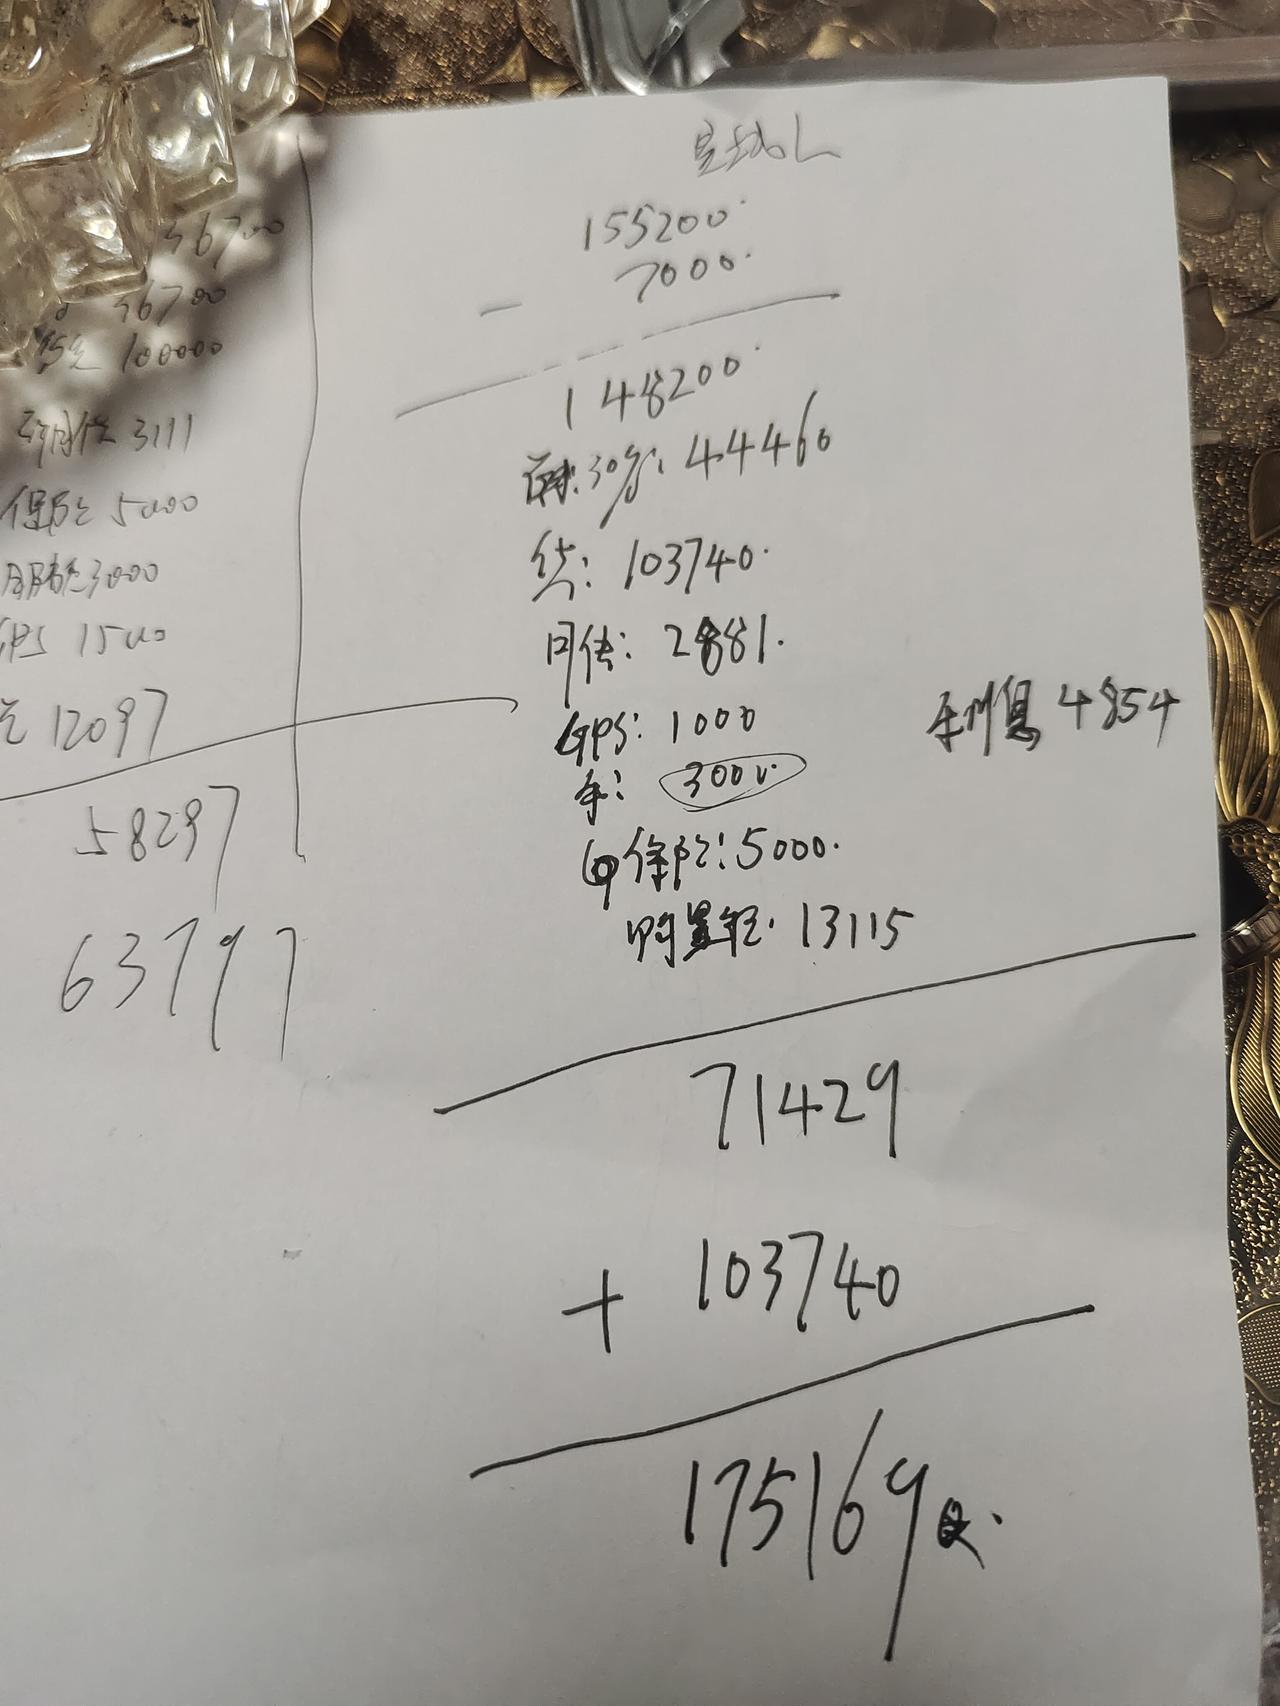 星越L
155200
- 7000
148200
首付:30%: 44460
贷: 103740
月供: 2881
GPS: 1000
手: 3000
年利息 4854
保险: 5000
购置税: 13115
71429
+ 103740
175169
56700
56700
贷 100000
3111
保险 5000
3000
GPS 1500
12097
58297
63797